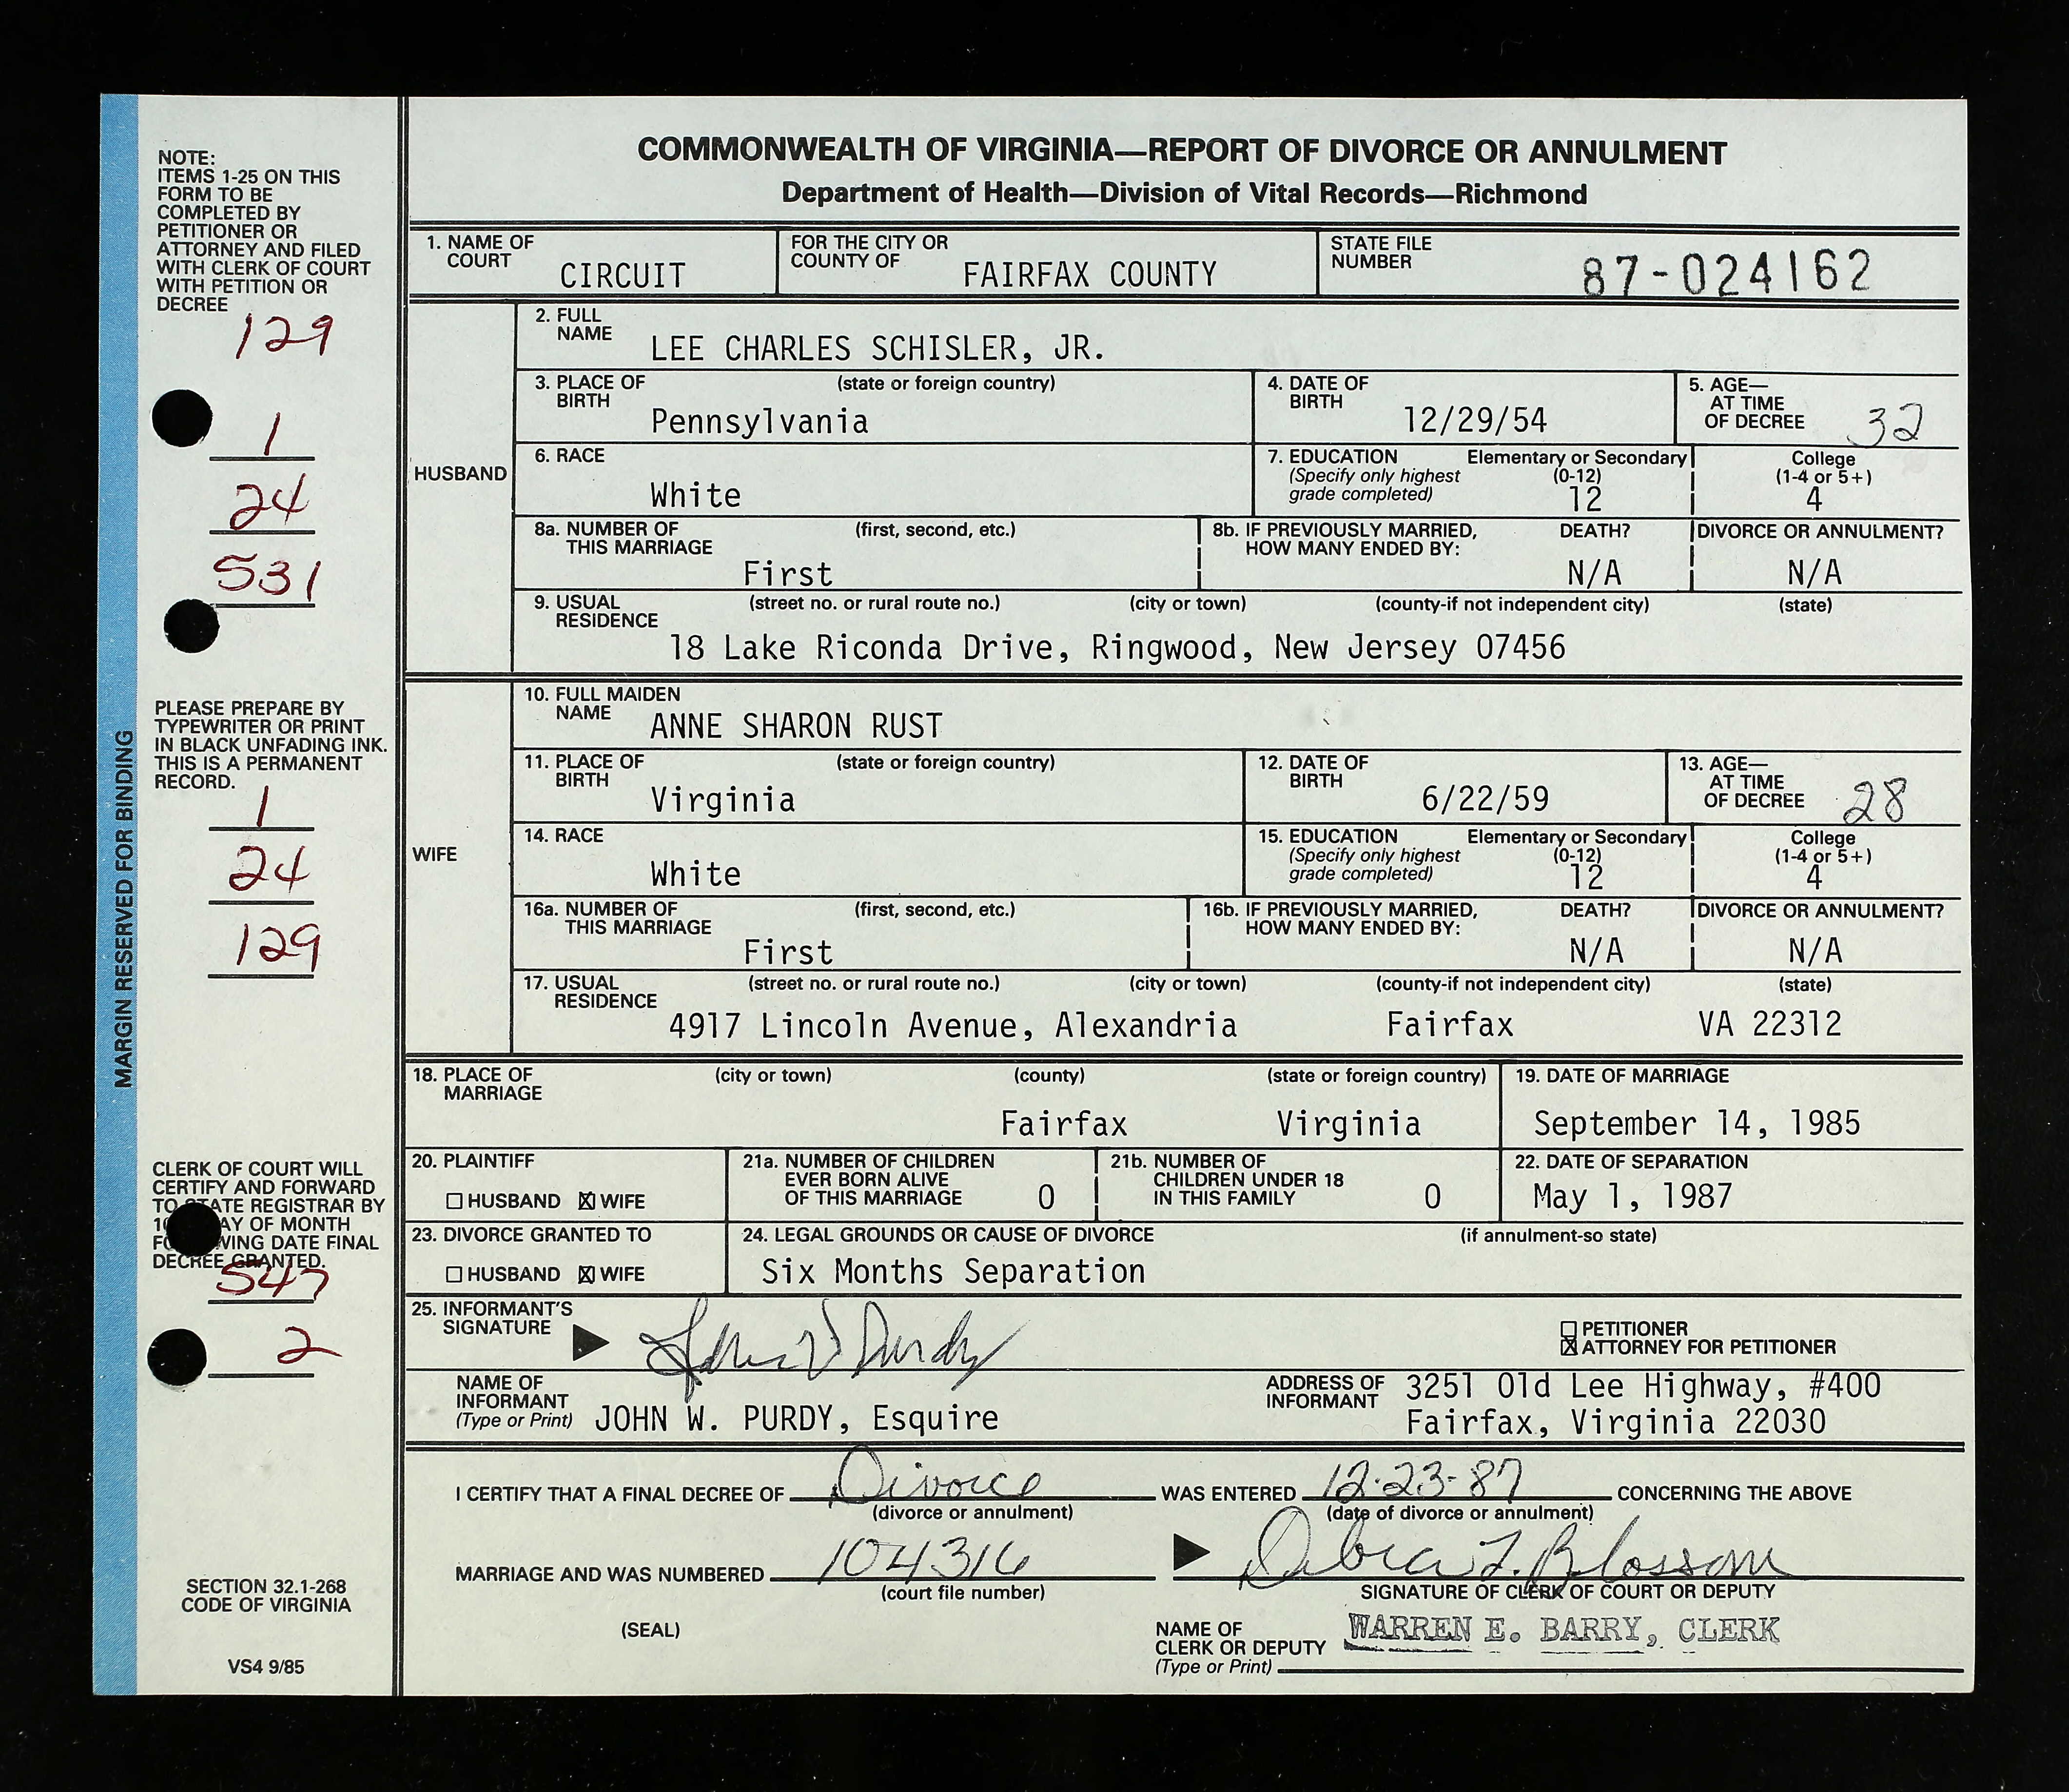 COMMONWEALTH OF VIRGINIA—REPORT OF DIVORCE OR ANNULMENT
Department of Health—Division of Vital Records—Richmond
NOTE:
ITEMS 1-25 ON THIS
FORM TO BE
COMPLETED BY
PETITIONER OR
ATTORNEY AND FILED
WITH CLERK OF COURT
WITH PETITION OR
DECREE
129
1
24
531
PLEASE PREPARE BY
TYPEWRITER OR PRINT
IN BLACK UNFADING INK.
THIS IS A PERMANENT
RECORD.
1
24
129
MARGIN RESERVED FOR BINDING
CLERK OF COURT WILL
CERTIFY AND FORWARD
TO STATE REGISTRAR BY
AY OF MONTH
WING DATE FINAL
DECREE GRANTED.
547
2
SECTION 32.1-268
CODE OF VIRGINIA
VS4 9/85
1. NAME OF COURT CIRCUIT FOR THE CITY OR COUNTY OF FAIRFAX COUNTY STATE FILE NUMBER 87-024162
HUSBAND
2. FULL NAME LEE CHARLES SCHISLER, JR.
3. PLACE OF BIRTH (state or foreign country) Pennsylvania 4. DATE OF BIRTH 12/29/54 5. AGE— AT TIME OF DECREE 32
6. RACE White 7. EDUCATION (Specify only highest grade completed) Elementary or Secondary (0-12) 12 College (1-4 or 5+) 4
8a. NUMBER OF THIS MARRIAGE (first, second, etc.) First 8b. IF PREVIOUSLY MARRIED, HOW MANY ENDED BY: DEATH? N/A DIVORCE OR ANNULMENT? N/A
9. USUAL RESIDENCE (street no. or rural route no.) (city or town) (county-if not independent city) (state)
18 Lake Riconda Drive, Ringwood, New Jersey 07456
WIFE
10. FULL MAIDEN NAME ANNE SHARON RUST
11. PLACE OF BIRTH (state or foreign country) Virginia 12. DATE OF BIRTH 6/22/59 13. AGE— AT TIME OF DECREE 28
14. RACE White 15. EDUCATION (Specify only highest grade completed) Elementary or Secondary (0-12) 12 College (1-4 or 5+) 4
16a. NUMBER OF THIS MARRIAGE (first, second, etc.) First 16b. IF PREVIOUSLY MARRIED, HOW MANY ENDED BY: DEATH? N/A DIVORCE OR ANNULMENT? N/A
17. USUAL RESIDENCE (street no. or rural route no.) (city or town) (county-if not independent city) (state)
4917 Lincoln Avenue, Alexandria Fairfax VA 22312
18. PLACE OF MARRIAGE (city or town) (county) (state or foreign country) 19. DATE OF MARRIAGE
Fairfax Virginia September 14, 1985
20. PLAINTIFF ☐ HUSBAND ☒ WIFE 21a. NUMBER OF CHILDREN EVER BORN ALIVE OF THIS MARRIAGE 0 21b. NUMBER OF CHILDREN UNDER 18 IN THIS FAMILY 0 22. DATE OF SEPARATION May 1, 1987
23. DIVORCE GRANTED TO ☐ HUSBAND ☒ WIFE 24. LEGAL GROUNDS OR CAUSE OF DIVORCE (if annulment-so state) Six Months Separation
25. INFORMANT'S SIGNATURE John W Purdy ☐ PETITIONER
☒ ATTORNEY FOR PETITIONER
NAME OF INFORMANT (Type or Print) JOHN W. PURDY, Esquire ADDRESS OF INFORMANT 3251 Old Lee Highway, #400
Fairfax, Virginia 22030
I CERTIFY THAT A FINAL DECREE OF Divorce WAS ENTERED 12-23-87 CONCERNING THE ABOVE
(divorce or annulment) (date of divorce or annulment)
MARRIAGE AND WAS NUMBERED 104316 Debra L. Blossom
(court file number) SIGNATURE OF CLERK OF COURT OR DEPUTY
(SEAL) NAME OF CLERK OR DEPUTY (Type or Print) WARREN E. BARRY, CLERK